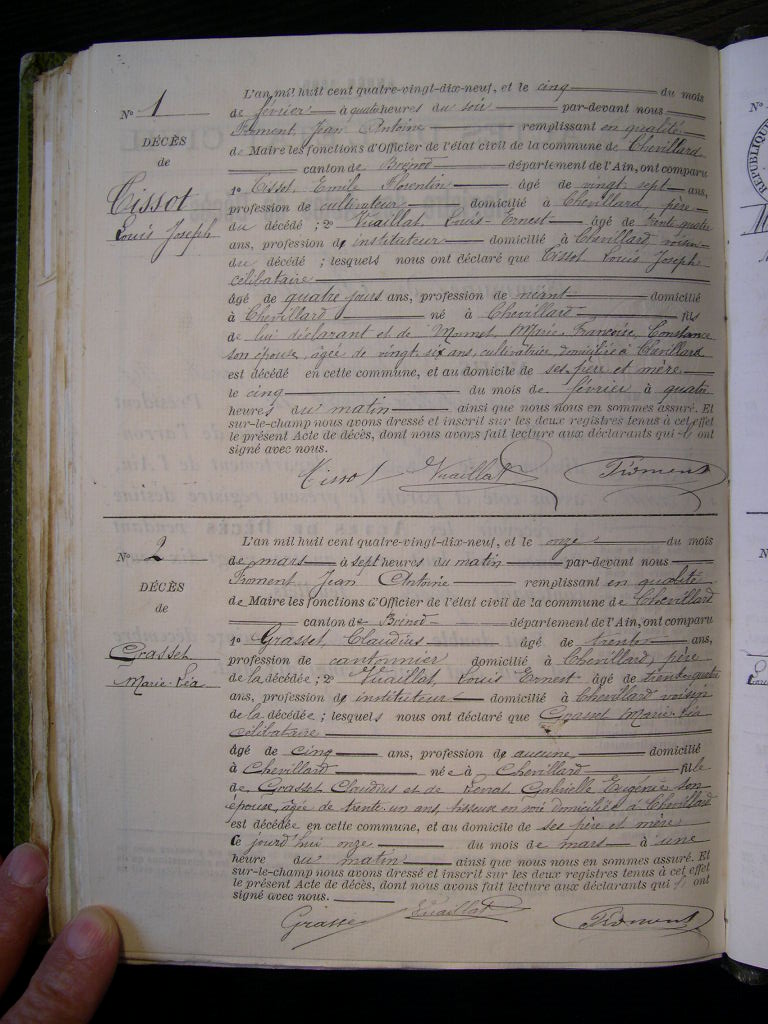 N° 1
DÉCÈS
de
Cissot
Louis Joseph
L'an mil huit cent quatre-vingt-dix-neuf, et le cinq du mois
de février à quatre heures du soir par-devant nous
Froment, Jean Antoine remplissant en qualité
de Maire les fonctions d'Officier de l'état civil de la commune de Chevillard
canton de Brénod département de l'Ain, ont comparu
1° Cissot, Emile Florentin âgé de vingt sept ans,
profession de cultivateur, domicilié à Chevillard, père
du décédé; 2° Vuaillat, Louis-Ernest âgé de trente quatre
ans, profession d' instituteur domicilié à Chevillard voisin
du décédé; lesquels nous ont déclaré que Cissot, Louis Joseph
célibataire
âgé de quatre jours ans, profession de néant domicilié
à Chevillard né à Chevillard fils
de lui déclarant et de Marie, Françoise, Constance
son épouse, âgée de vingt six ans, cultivatrice, domiciliée à Chevillard
est décédé en cette commune, et au domicile de ses père et mère
le cinq du mois de février à quatre
heures du matin ainsi que nous nous en sommes assuré. Et
sur-le-champ nous avons dressé et inscrit sur les deux registres tenus à cet effet
le présent Acte de décès, dont nous avons fait lecture aux déclarants qui ont
signé avec nous.
Cissot Vuaillat Froment
N° 2
DÉCÈS
de
Grasset
Marie-Léa
L'an mil huit cent quatre-vingt-dix-neuf, et le onze du mois
de mars à sept heures du matin par-devant nous
Froment Jean Antoine remplissant en qualité
de Maire les fonctions d'Officier de l'état civil de la commune de Chevillard
canton de Brénod département de l'Ain, ont comparu
1° Grasset, Claudius âgé de trente ans,
profession de cantonnier domicilié à Chevillard, père
de la décédée; 2° Vuaillat, Louis Ernest âgé de trente quatre
ans, profession d' instituteur domicilié à Chevillard voisin
de la décédée; lesquels nous ont déclaré que Grasset Marie-Léa
célibataire
âgé de cinq ans, profession d' aucune domicilié
à Chevillard née à Chevillard fille
de Grasset Claudius et de Gabrielle Eugénie son
épouse, âgée de trente un ans, tisseuse en soie domiciliée à Chevillard
est décédée en cette commune, et au domicile de ses père et mère
Ce jourd'hui onze du mois de mars à une
heure du matin ainsi que nous nous en sommes assuré. Et
sur-le-champ nous avons dressé et inscrit sur les deux registres tenus à cet effet
le présent Acte de décès, dont nous avons fait lecture aux déclarants qui ont
signé avec nous.
Grasset Vuaillat Froment